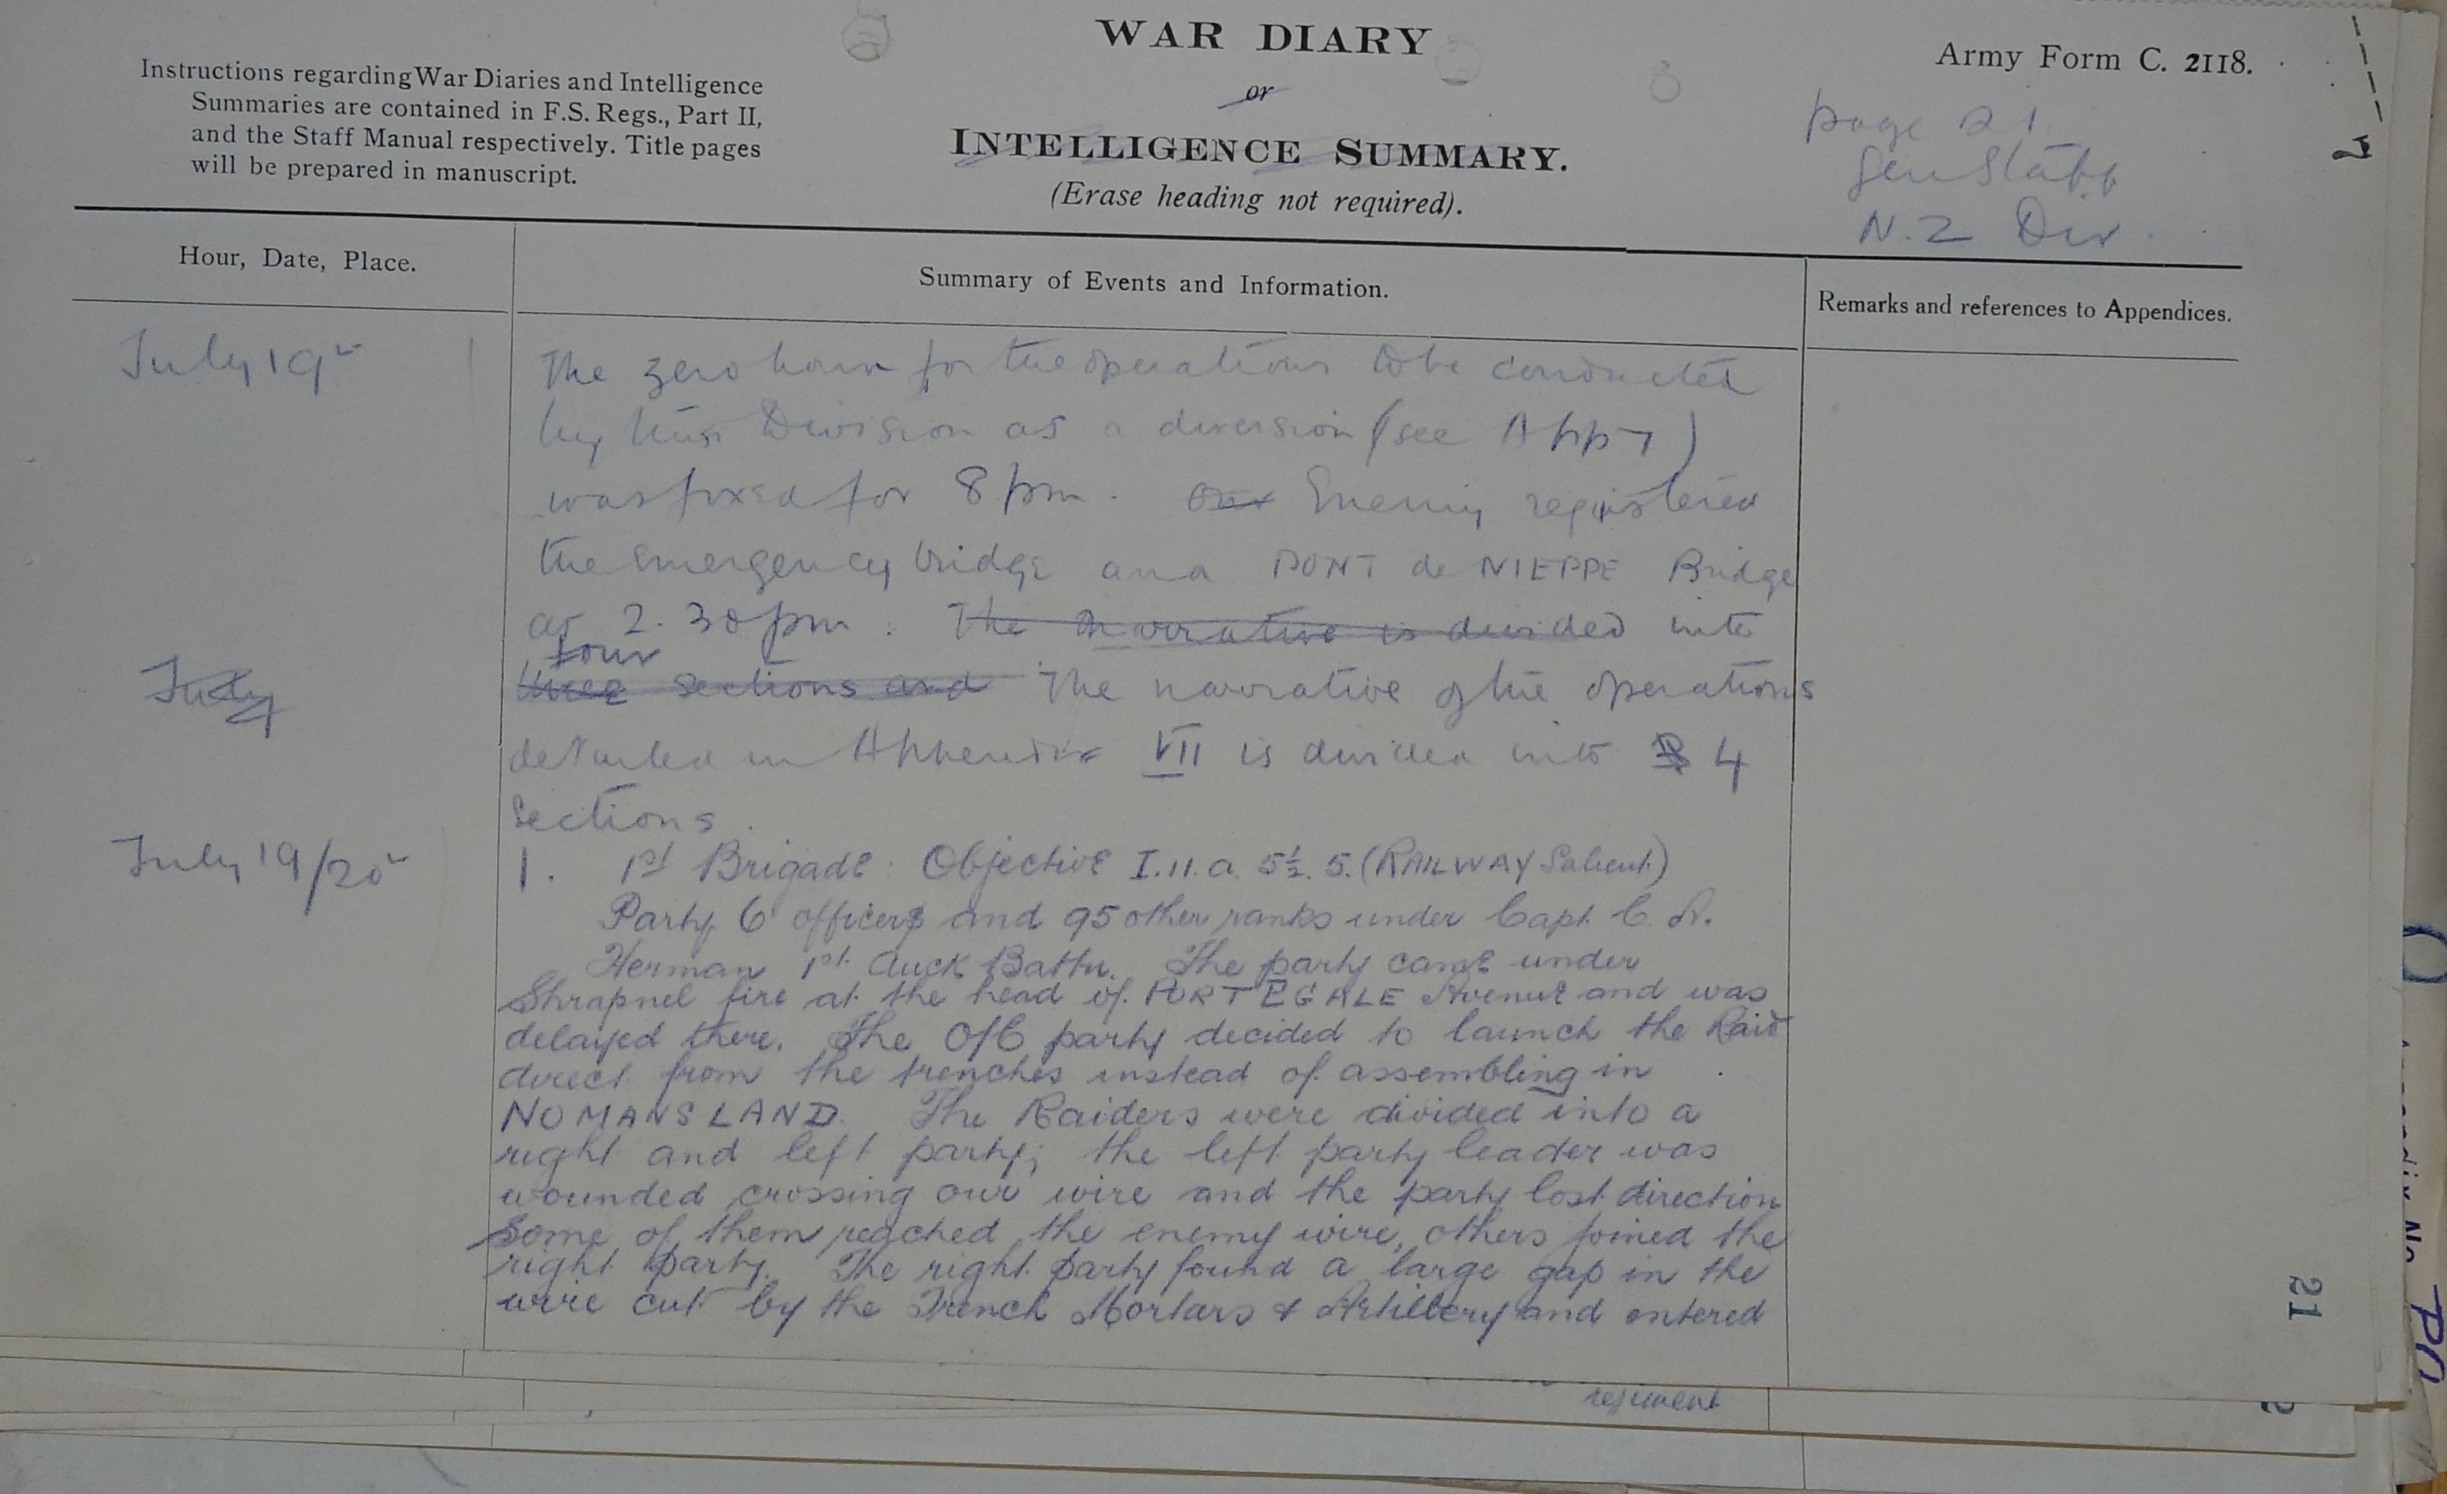 WAR DIARY
or
INTELLIGENCE SUMMARY.
(Erase heading not required).
Instructions regarding War Diaries and Intelligence
Summaries are contained in F.S. Regs., Part II,
and the Staff Manual respectively. Title pages
will be prepared in manuscript.
Army Form C. 2118.
page 21
Gen Staff
N.Z Div.
Hour, Date, Place.
Summary of Events and Information.
Remarks and references to Appendices.
July 19
The zero hour for the operations to be conducted
by this Division as a diversion (see App 7)
was fixed for 8 pm. Enemy registered
the emergency bridge and PONT de NIEPPE Bridge
at 2.30 pm. The narrative is divided into
four
three sections and The narrative of the operations
July
detailed in Appendix VII is divided into 4
sections.
July 19/20
1. 1st Brigade: Objective I.11.a. 5½.5. (RAILWAY Salient)
Party 6 officers and 95 other ranks under Capt. C. R.
Herman 1st Auck Battn. The party came under
Shrapnel fire at the head of PORT EGALE Avenue and was
delayed there. The O/C party decided to launch the Raid
direct from the trenches instead of assembling in
NO MANS LAND. The Raiders were divided into a
right and left party; the left party leader was
wounded crossing our wire and the party lost direction
Some of them reached the enemy wire, others joined the
right party. The right party found a large gap in the
wire cut by the Trench Mortars & Artillery and entered
regiment
21